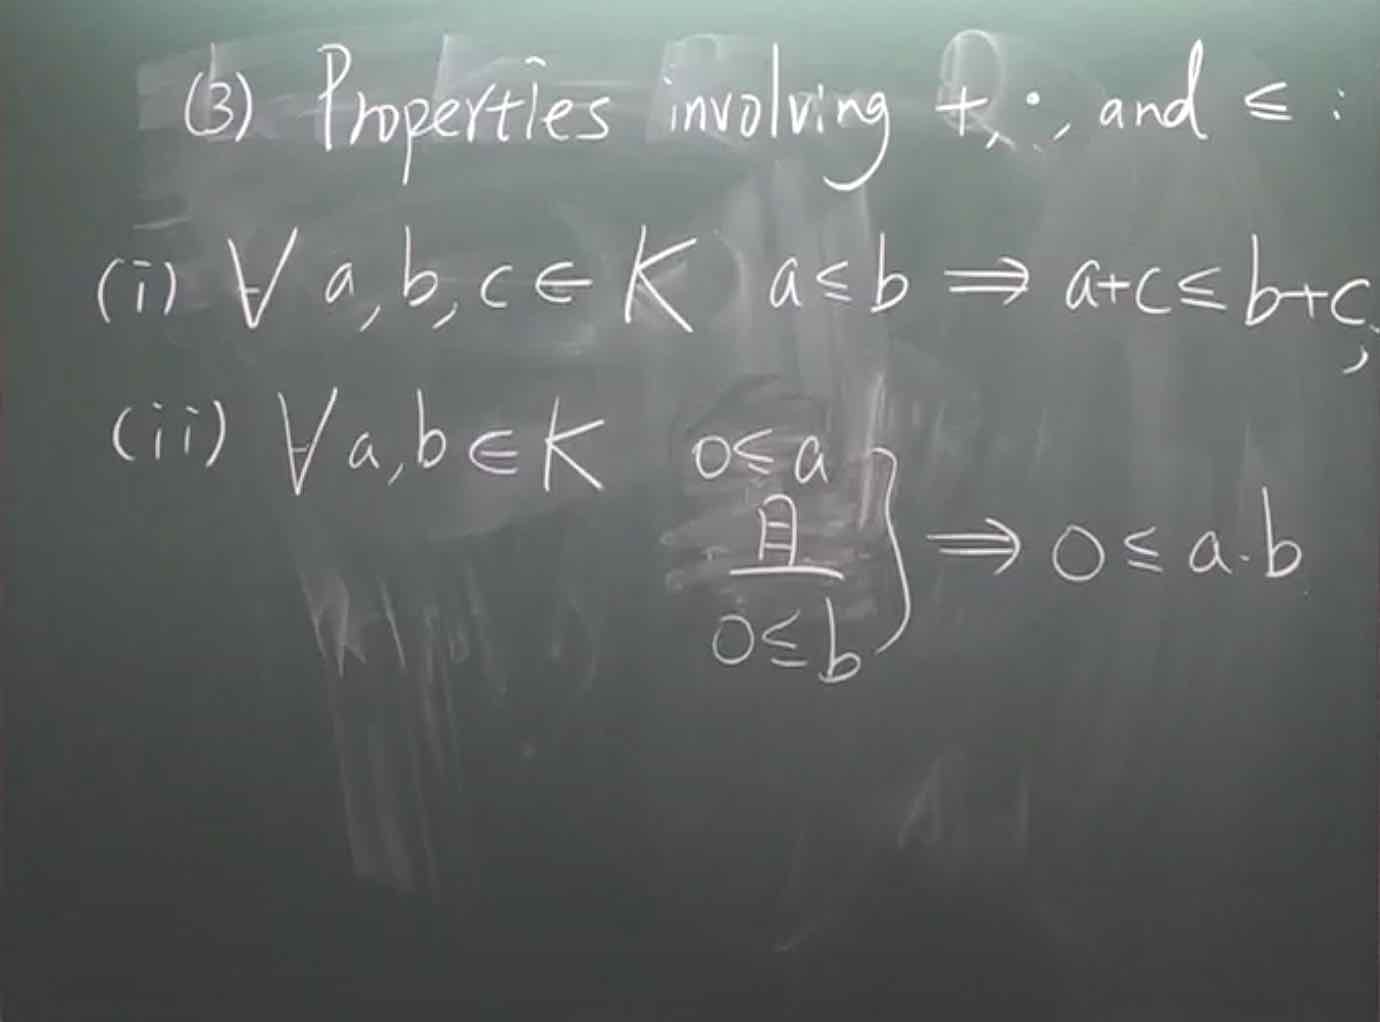 (3) Properties involving +, ·, and ≤ :
(i) ∀ a, b, c ∈ K a ≤ b ⟹ a+c ≤ b+c;
(ii) ∀ a, b ∈ K 0 ≤ a
且 ⟹ 0 ≤ a·b
0 ≤ b